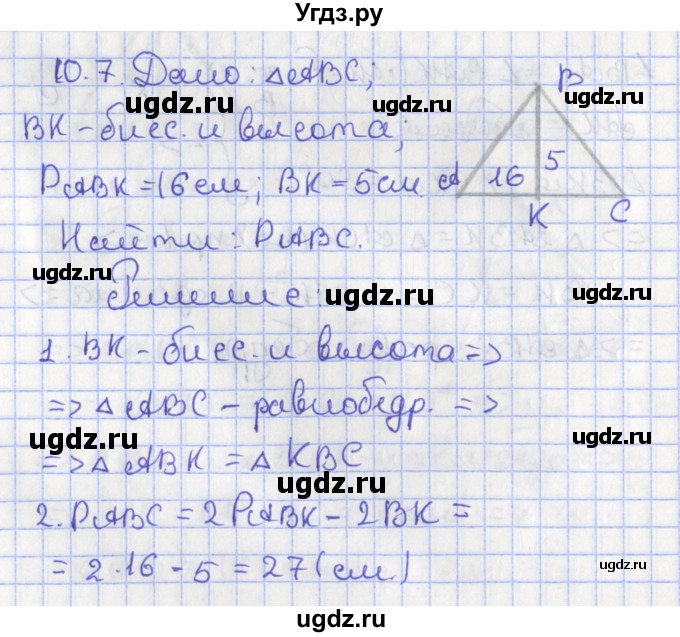 Угдз.ру
10.7. Дано: △ABC;
ugdz.ru ugdz.ru
BK - бисс. и высота;
ugdz.ru
PABK = 16 см; BK = 5 см
B
A 16 5
K C
Найти: PABC.
ugdz.ru ugdz.ru ugdz.ru
Решение:
1. BK - бисс. и высота =>
=> △ABC - равнобедр. =>
ugdz.ru ugdz.ru
=> △ABK = △KBC
ugdz.ru
2. PABC = 2PABK - 2BK =
= 2·16 - 5 = 27 (см.)
ugdz.ru ugdz.ru
ugdz.ru